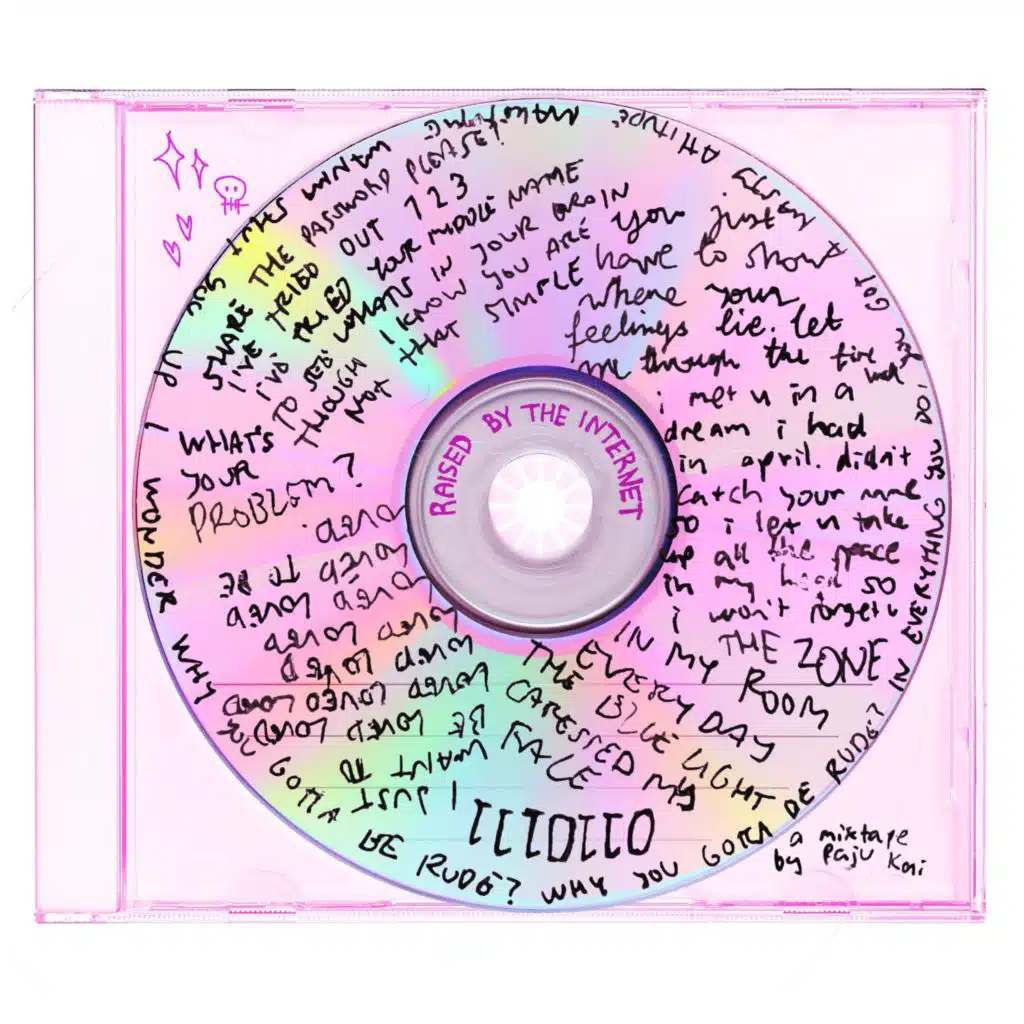 RAISED BY THE INTERNET
SHARE THE PASSWORD PLEASE!
I'VE TRIED OUT 123
I'VE TRIED YOUR MIDDLE NAME
TO SEE WHAT'S IN YOUR BRAIN
THOUGH I KNOW YOU ARE
NOT THAT SIMPLE
WHAT'S
YOUR
PROBLEM?
you just
have to show
where your
feelings lie. let
me through the fire
i met u in a
dream i had
in april. didn't
catch your name
so i let u take
up all the peace
in my head so
i won't forget u
THE ZONE
IN MY ROOM
EVERY DAY
THE BLUE LIGHT
CARESSED MY
FACE
I JUST
WANT TO
BE LOVED LOVED
LOVED LOVED LOVED
LOVED LOVED
LOVED LOVED
LOVED LOVED
LOVED TO BE
LOVED.
I WONDER WHY
YOU GOTTA BE RUDE? WHY YOU GOTTA BE RUDE? IN EVERYTHING YOU DO,
GOT
ATTITUDE
a mixtape
by Paju Kai